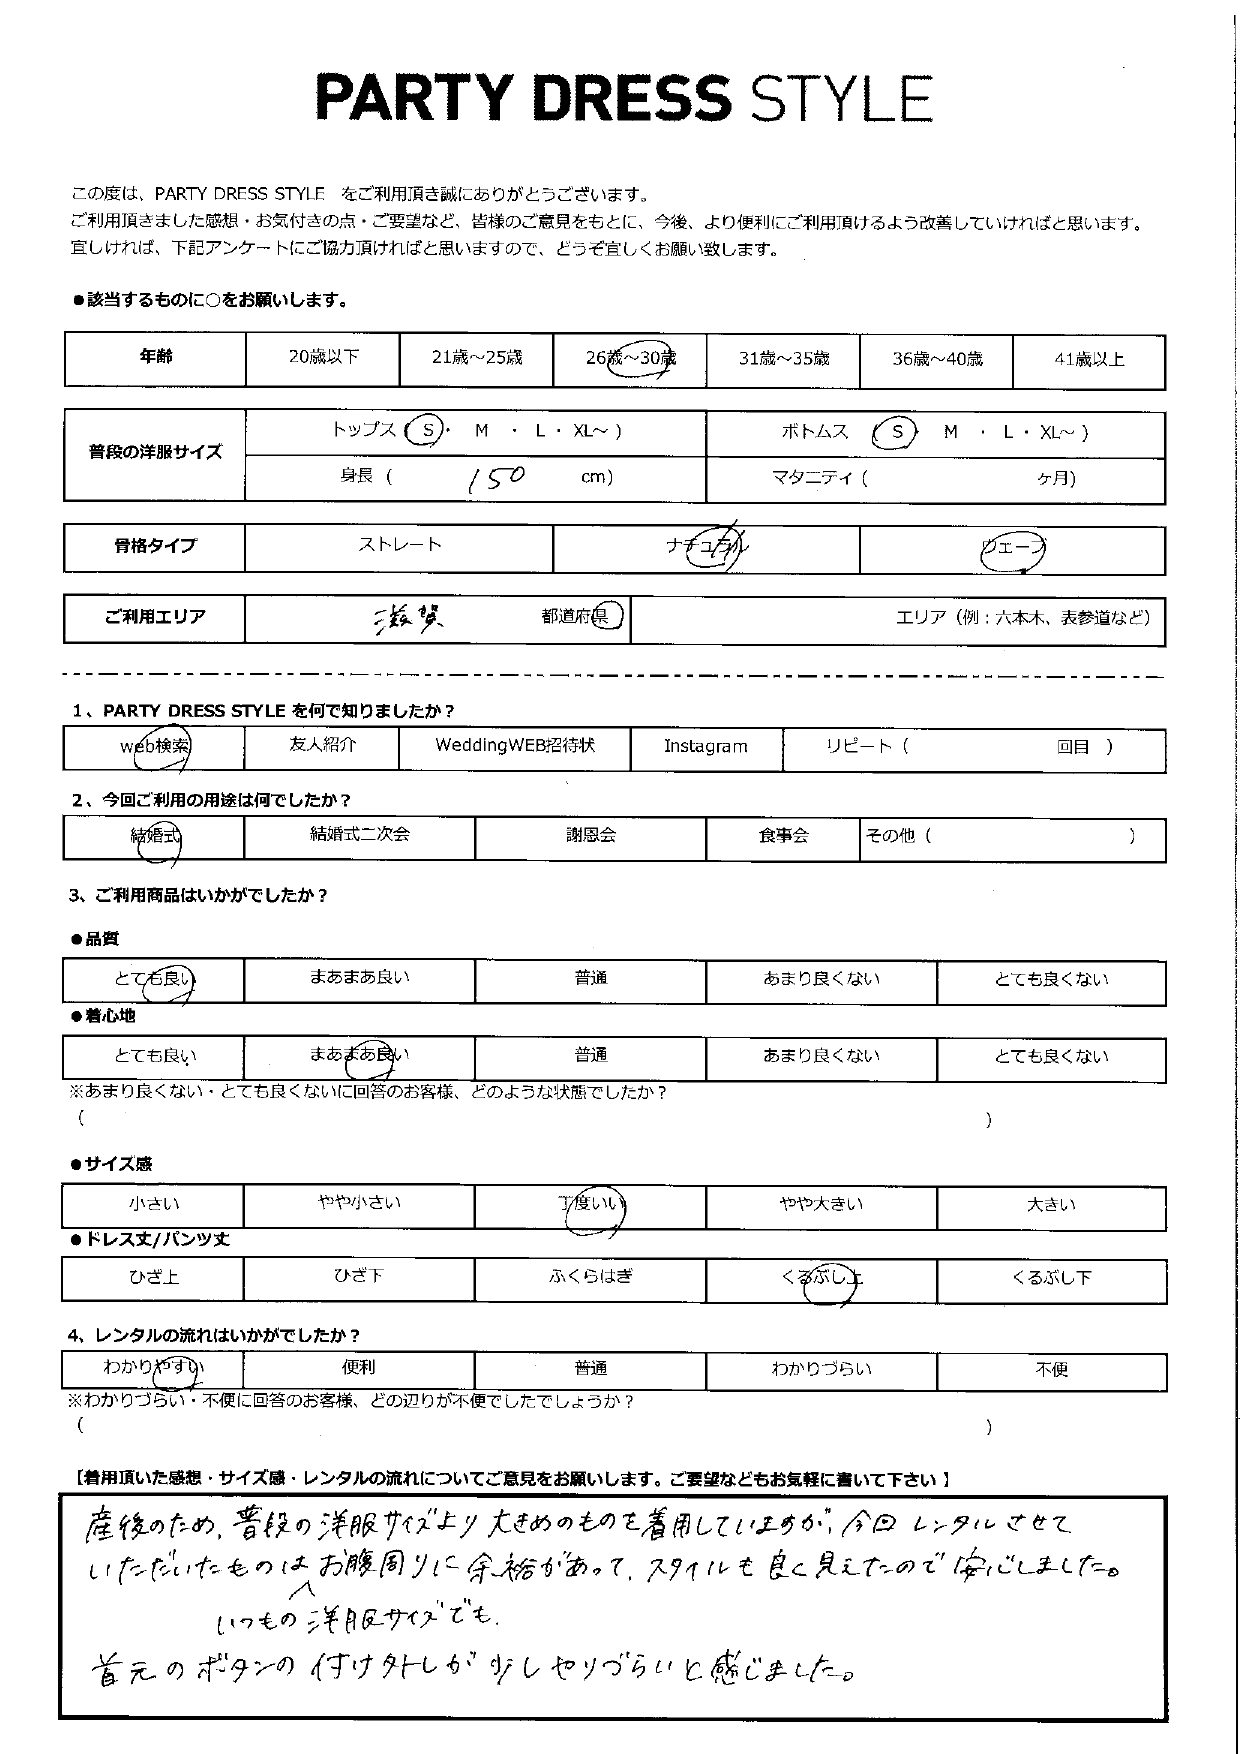 PARTY DRESS STYLE
この度は、PARTY DRESS STYLE をご利用頂き誠にありがとうございます。
ご利用頂きました感想・お気付きの点・ご要望など、皆様のご意見をもとに、今後、より便利にご利用頂けるよう改善していければと思います。
宜しければ、下記アンケートにご協力頂ければと思いますので、どうぞ宜しくお願い致します。
●該当するものに○をお願いします。
年齢 20歳以下 21歳～25歳 26歳～30歳 31歳～35歳 36歳～40歳 41歳以上
普段の洋服サイズ
トップス ( S ・ M ・ L ・ XL～ ) ボトムス ( S ・ M ・ L ・ XL～ )
身長 ( 150 cm) マタニティ ( ヶ月)
骨格タイプ ストレート ナチュラル ウェーブ
ご利用エリア 滋賀 都道府県 エリア（例：六本木、表参道など）
1、PARTY DRESS STYLE を何で知りましたか？
web検索 友人紹介 WeddingWEB招待状 Instagram リピート ( 回目 )
2、今回ご利用の用途は何でしたか？
結婚式 結婚式二次会 謝恩会 食事会 その他 ( )
3、ご利用商品はいかがでしたか？
●品質
とても良い まあまあ良い 普通 あまり良くない とても良くない
●着心地
とても良い まあまあ良い 普通 あまり良くない とても良くない
※あまり良くない・とても良くないに回答のお客様、どのような状態でしたか？
( )
●サイズ感
小さい やや小さい 丁度いい やや大きい 大きい
●ドレス丈/パンツ丈
ひざ上 ひざ下 ふくらはぎ くるぶし上 くるぶし下
4、レンタルの流れはいかがでしたか？
わかりやすい 便利 普通 わかりづらい 不便
※わかりづらい・不便に回答のお客様、どの辺りが不便でしたでしょうか？
( )
【着用頂いた感想・サイズ感・レンタルの流れについてご意見をお願いします。ご要望などもお気軽に書いて下さい】
産後のため、普段の洋服サイズより大きめのものを着用していますが、今回レンタルさせて
いただいたものはお腹周りに余裕があって、スタイルも良く見えたので安心しました。
いつもの洋服サイズでも、
首元のボタンの付け外しが少しやりづらいと感じました。